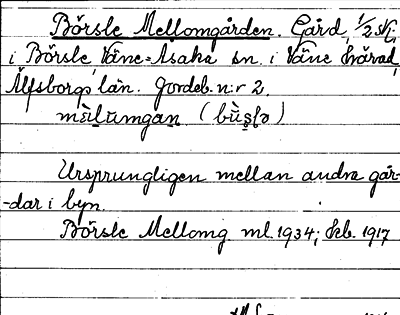 Börsle Mellomgården. Gård, 1/2 sk;
i Börsle Väne-Åsaka sn. i Väne härad,
Älfsborgs län. Jordeb. n:r 2.
(bùʂlə)
Ursprungligen mellan andra går-
-dar i byn.
Börsle Mellomg. ml. 1934; Jeb. 1917